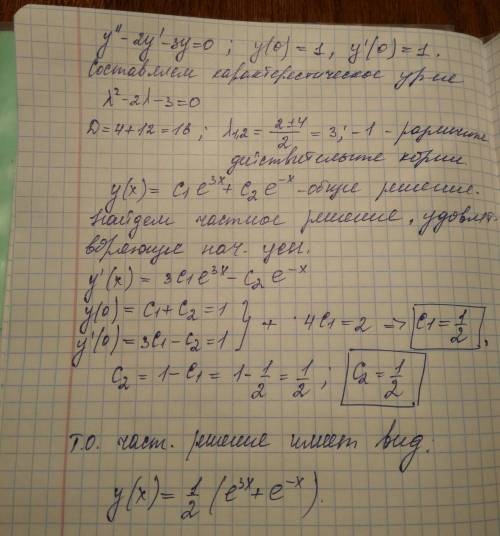 y'' - 2y' - 3y = 0 ; y(0) = 1, y'(0) = 1.
Составляем характерестическое ур-ие
λ² - 2λ - 3 = 0
D = 4 + 12 = 16 ; λ₁,₂ = (2±4)/2 = 3; -1 - различные
действительные корни
y(x) = C₁e^{3x} + C₂e^{-x} - общее решение.
Найдем частное решение, удовлет-
воряющие нач. усл.
y'(x) = 3C₁e^{3x} - C₂e^{-x}
y(0) = C₁ + C₂ = 1
y'(0) = 3C₁ - C₂ = 1 } + · 4C₁ = 2 => C₁ = 1/2,
C₂ = 1 - C₁ = 1 - 1/2 = 1/2 ; C₂ = 1/2.
Т.О. част. решение имеет вид:
y(x) = 1/2 (e^{3x} + e^{-x}).